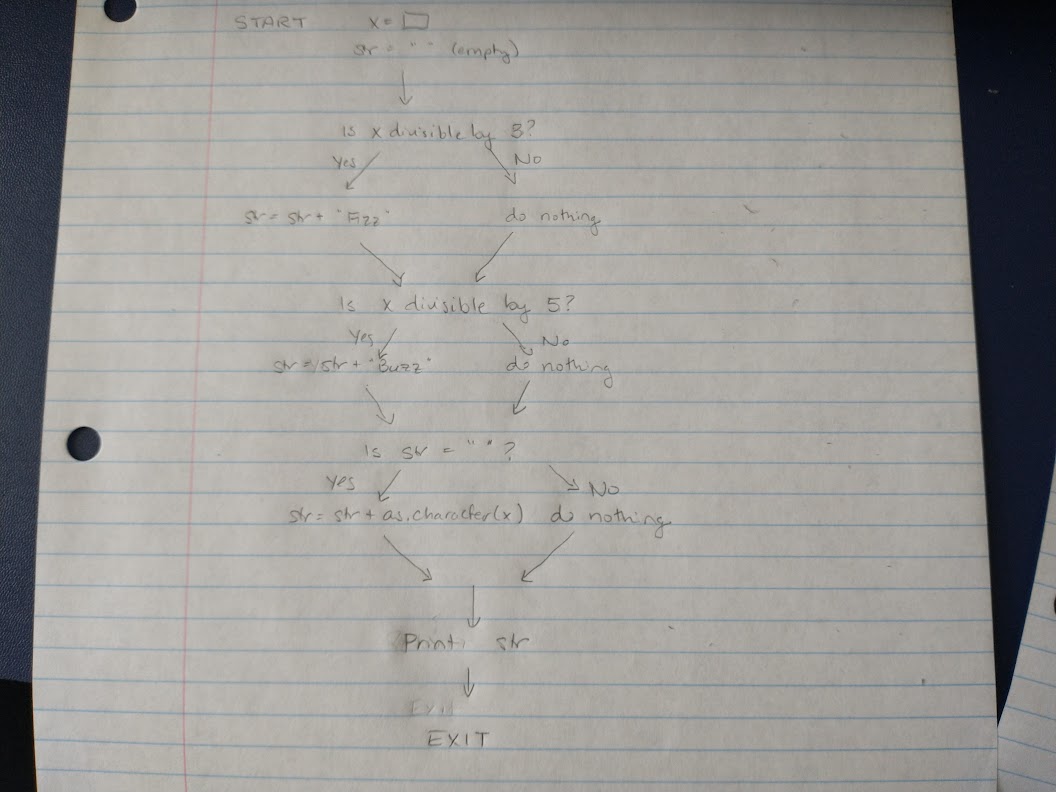 START x = □
str = " " (empty)
Is x divisible by 3?
Yes No
str = str + "Fizz" do nothing
Is x divisible by 5?
Yes No
str = str + "Buzz" do nothing
Is str = " " ?
Yes No
str = str + as.character(x) do nothing
Print str
Exit
EXIT